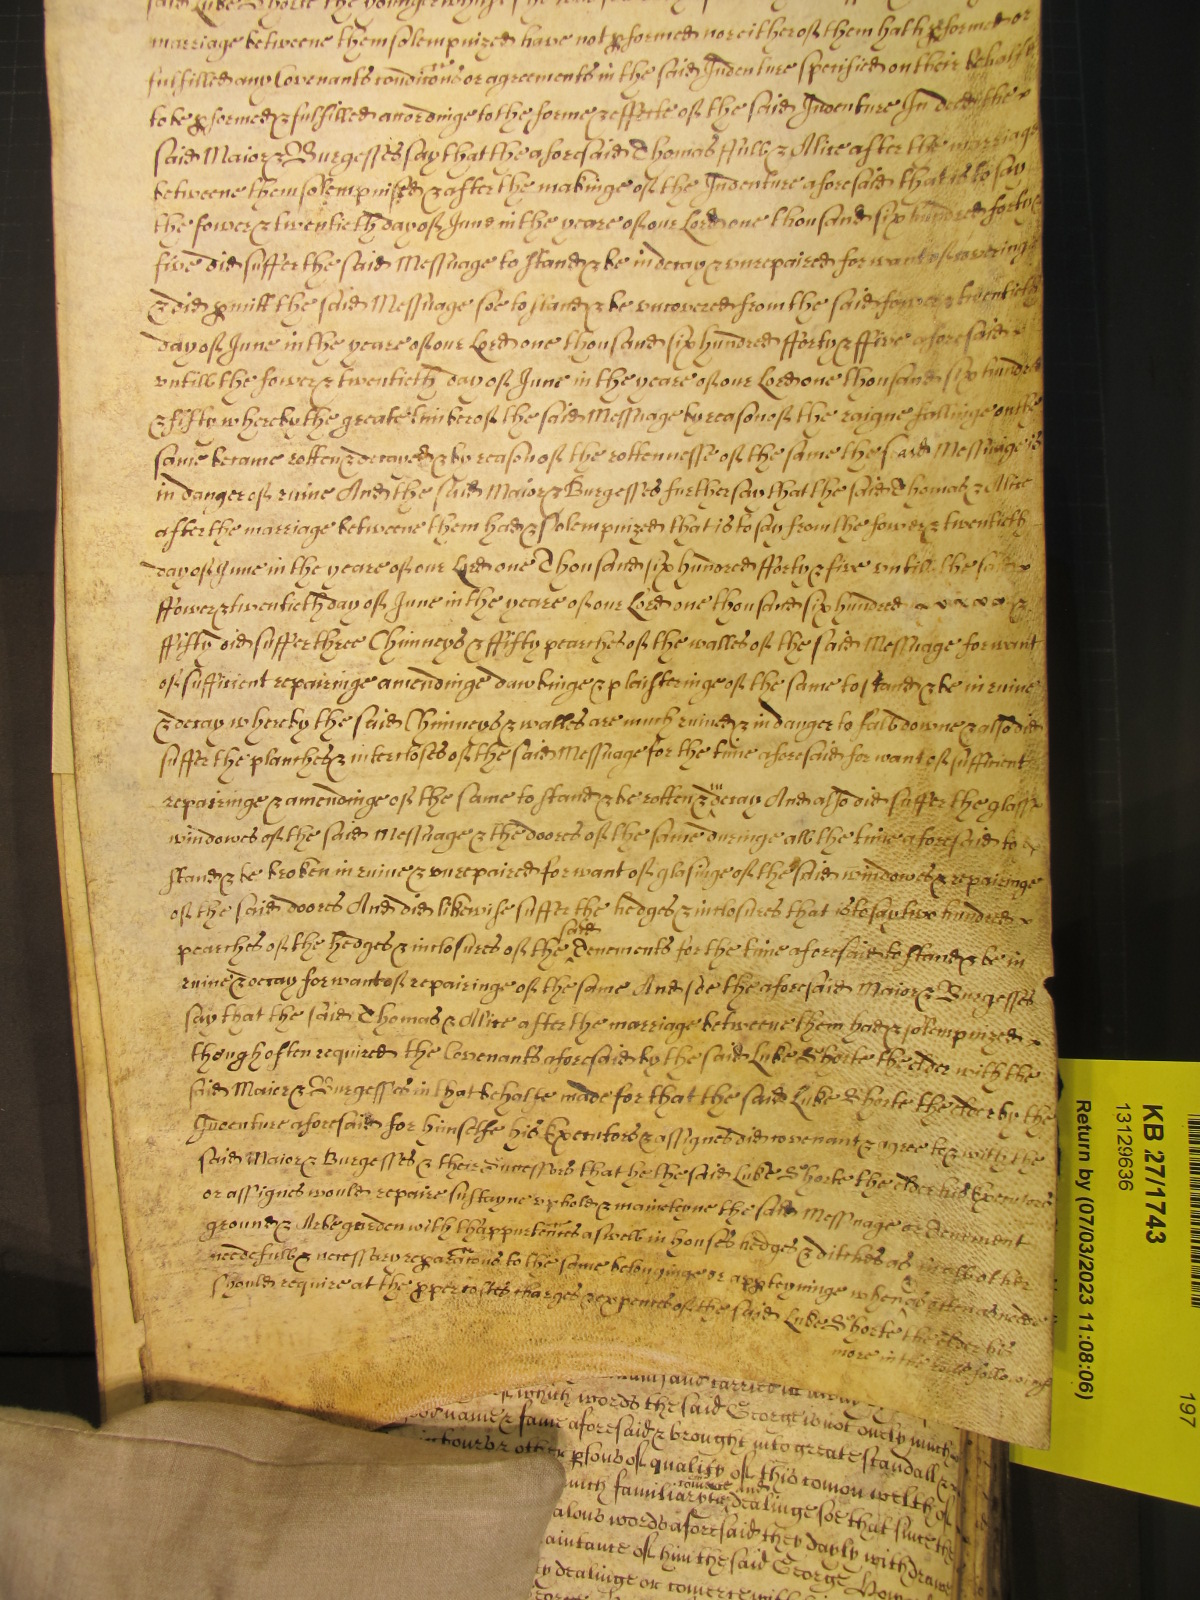 said Luke Shorte the younger
marriage betweene them solempnized have not pformed nor either of them hath pformed or
fulfilled any Covenants condicons or agreements in the said Indenture specified on their behalfe
to be pformed & fulfilled accordinge to the forme & effecte of the said Indenture In deed the
said Maior & Burgesses say that the aforesaid Thomas ffull & Alice after the marriage
betweene them solempnised & after the makinge of the Indenture aforesaid that is to say
the fower & twentieth day of June in the yeare of our Lord one thousand six hundred forty &
five did suffer the said Messuage to stand & be in decay & unrepaired for want of coveringe
& did pmitt the said Messuage soe to stand & be uncovered from the said fower & twentieth
day of June in the yeare of our Lord one thousand six hundred fforty & ffive aforesaid
untill the fower & twentieth day of June in the yeare of our Lord one thousand six hundred
& fifty whereby the greate timber of the said Messuage by reason of the raigne fallinge on the
same became rotten & decayed & by reason of the rottennesse of the same the said Messuage is
in danger of ruine And the said Maior & Burgesses further say that the said Thomas & Alice
after the marriage betweene them had & solempnized that is to say from the fower & twentieth
day of June in the yeare of our Lord one Thousand six hundred fforty & five untill the said
ffower & twentieth day of June in the yeare of our Lord one thousand six hundred &
ffifty did suffer three Chimneys & ffifty pearches of the walles of the said Messuage for want
of sufficient repairinge amendinge dawbinge & plaisteringe of the same to stand & be in ruine
& decay whereby the said Chimneys & walles are much ruined & in danger to fall downe & also did
suffer the planches & intercloses of the said Messuage for the time aforesaid for want of sufficient
repairinge & amendinge of the same to stand & be rotten & in decay And also did suffer the glasse
windowes of the said Messuage & the doores of the same duringe all the time aforesaid to
stand & be broken in ruine & unrepaired for want of glasinge of the said windowes & repairinge
of the said doores And did likewise suffer the hedges & inclosures that is to say two hundred
pearches of the hedges & inclosures of the said Tenements for the time aforesaid to stand & be in
ruine & decay for want of repairinge of the same And soe the aforesaid Maior & Burgesses
say that the said Thomas & Alice after the marriage betweene them had & solempnized
though often required the Covenants aforesaid by the said Luke Shorte the elder with the
said Maior & Burgesses in that behalfe made for that the said Luke Shorte the elder by the
Indenture aforesaid for himselfe his Executors & assignes did covenant & agree to & with the
said Maior & Burgesses & their Successors that he the said Luke Shorte the elder his Executors
or assignes would repaire sustayne uphold & mainteyne the said Messuage or Tenement
ground & garden with thappurtences aswell in houses hedges & ditches as in all other
needefull & necessary reparacons to the same belonginge or appteyninge when & as often as neede
should require at the pper costes charges & expences of the said Luke Shorte the elder his
more in the rolle followinge
and carried it away
of which words the said George is not onely much
good name & fame aforesaid & brought into greate scandall &
neighbours & other psons of quality of this comon welth of
with familiarytie comerce and dealinge soe that since the
words aforesaid they dayly withdrawe
of him the said George
dealinge or comerce with
KB 27/1743
13129636
Return by (07/03/2023 11:08:06)
197